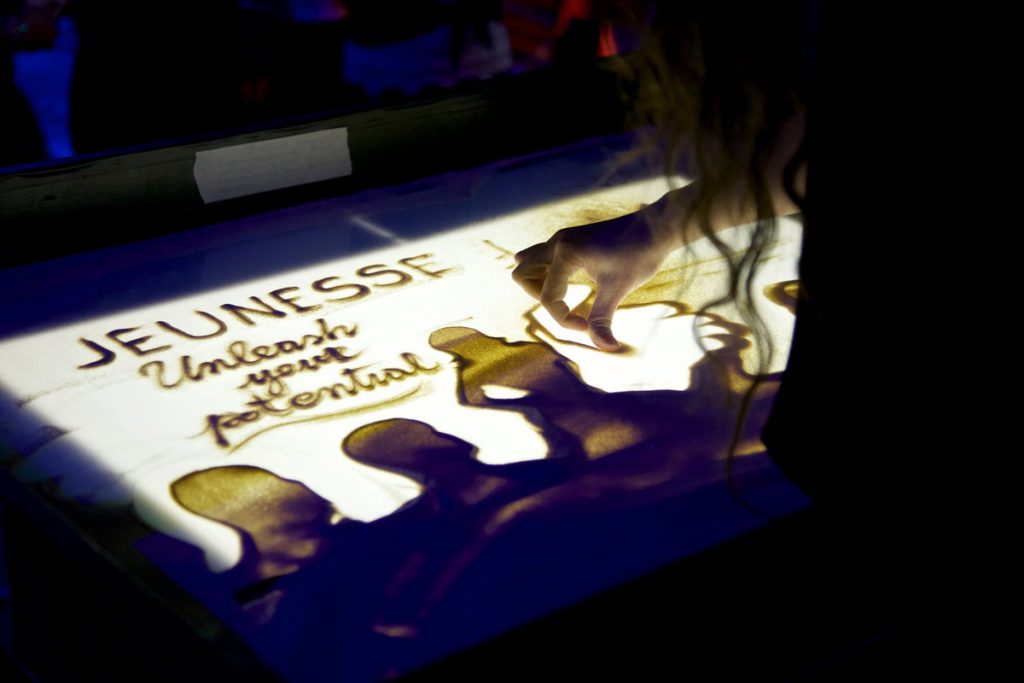 JEUNESSE
Unleash
your
potential